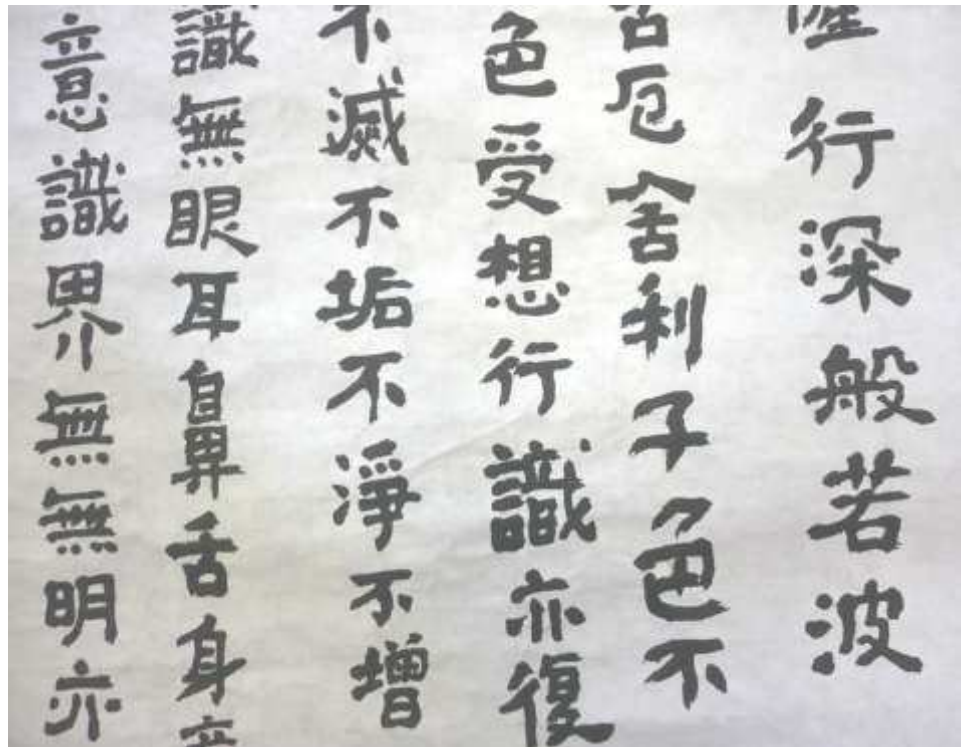 薩行深般若波
苦厄舍利子色不
色受想行識亦復
不滅不垢不淨不增
識無眼耳鼻舌身意
意識界無無明亦